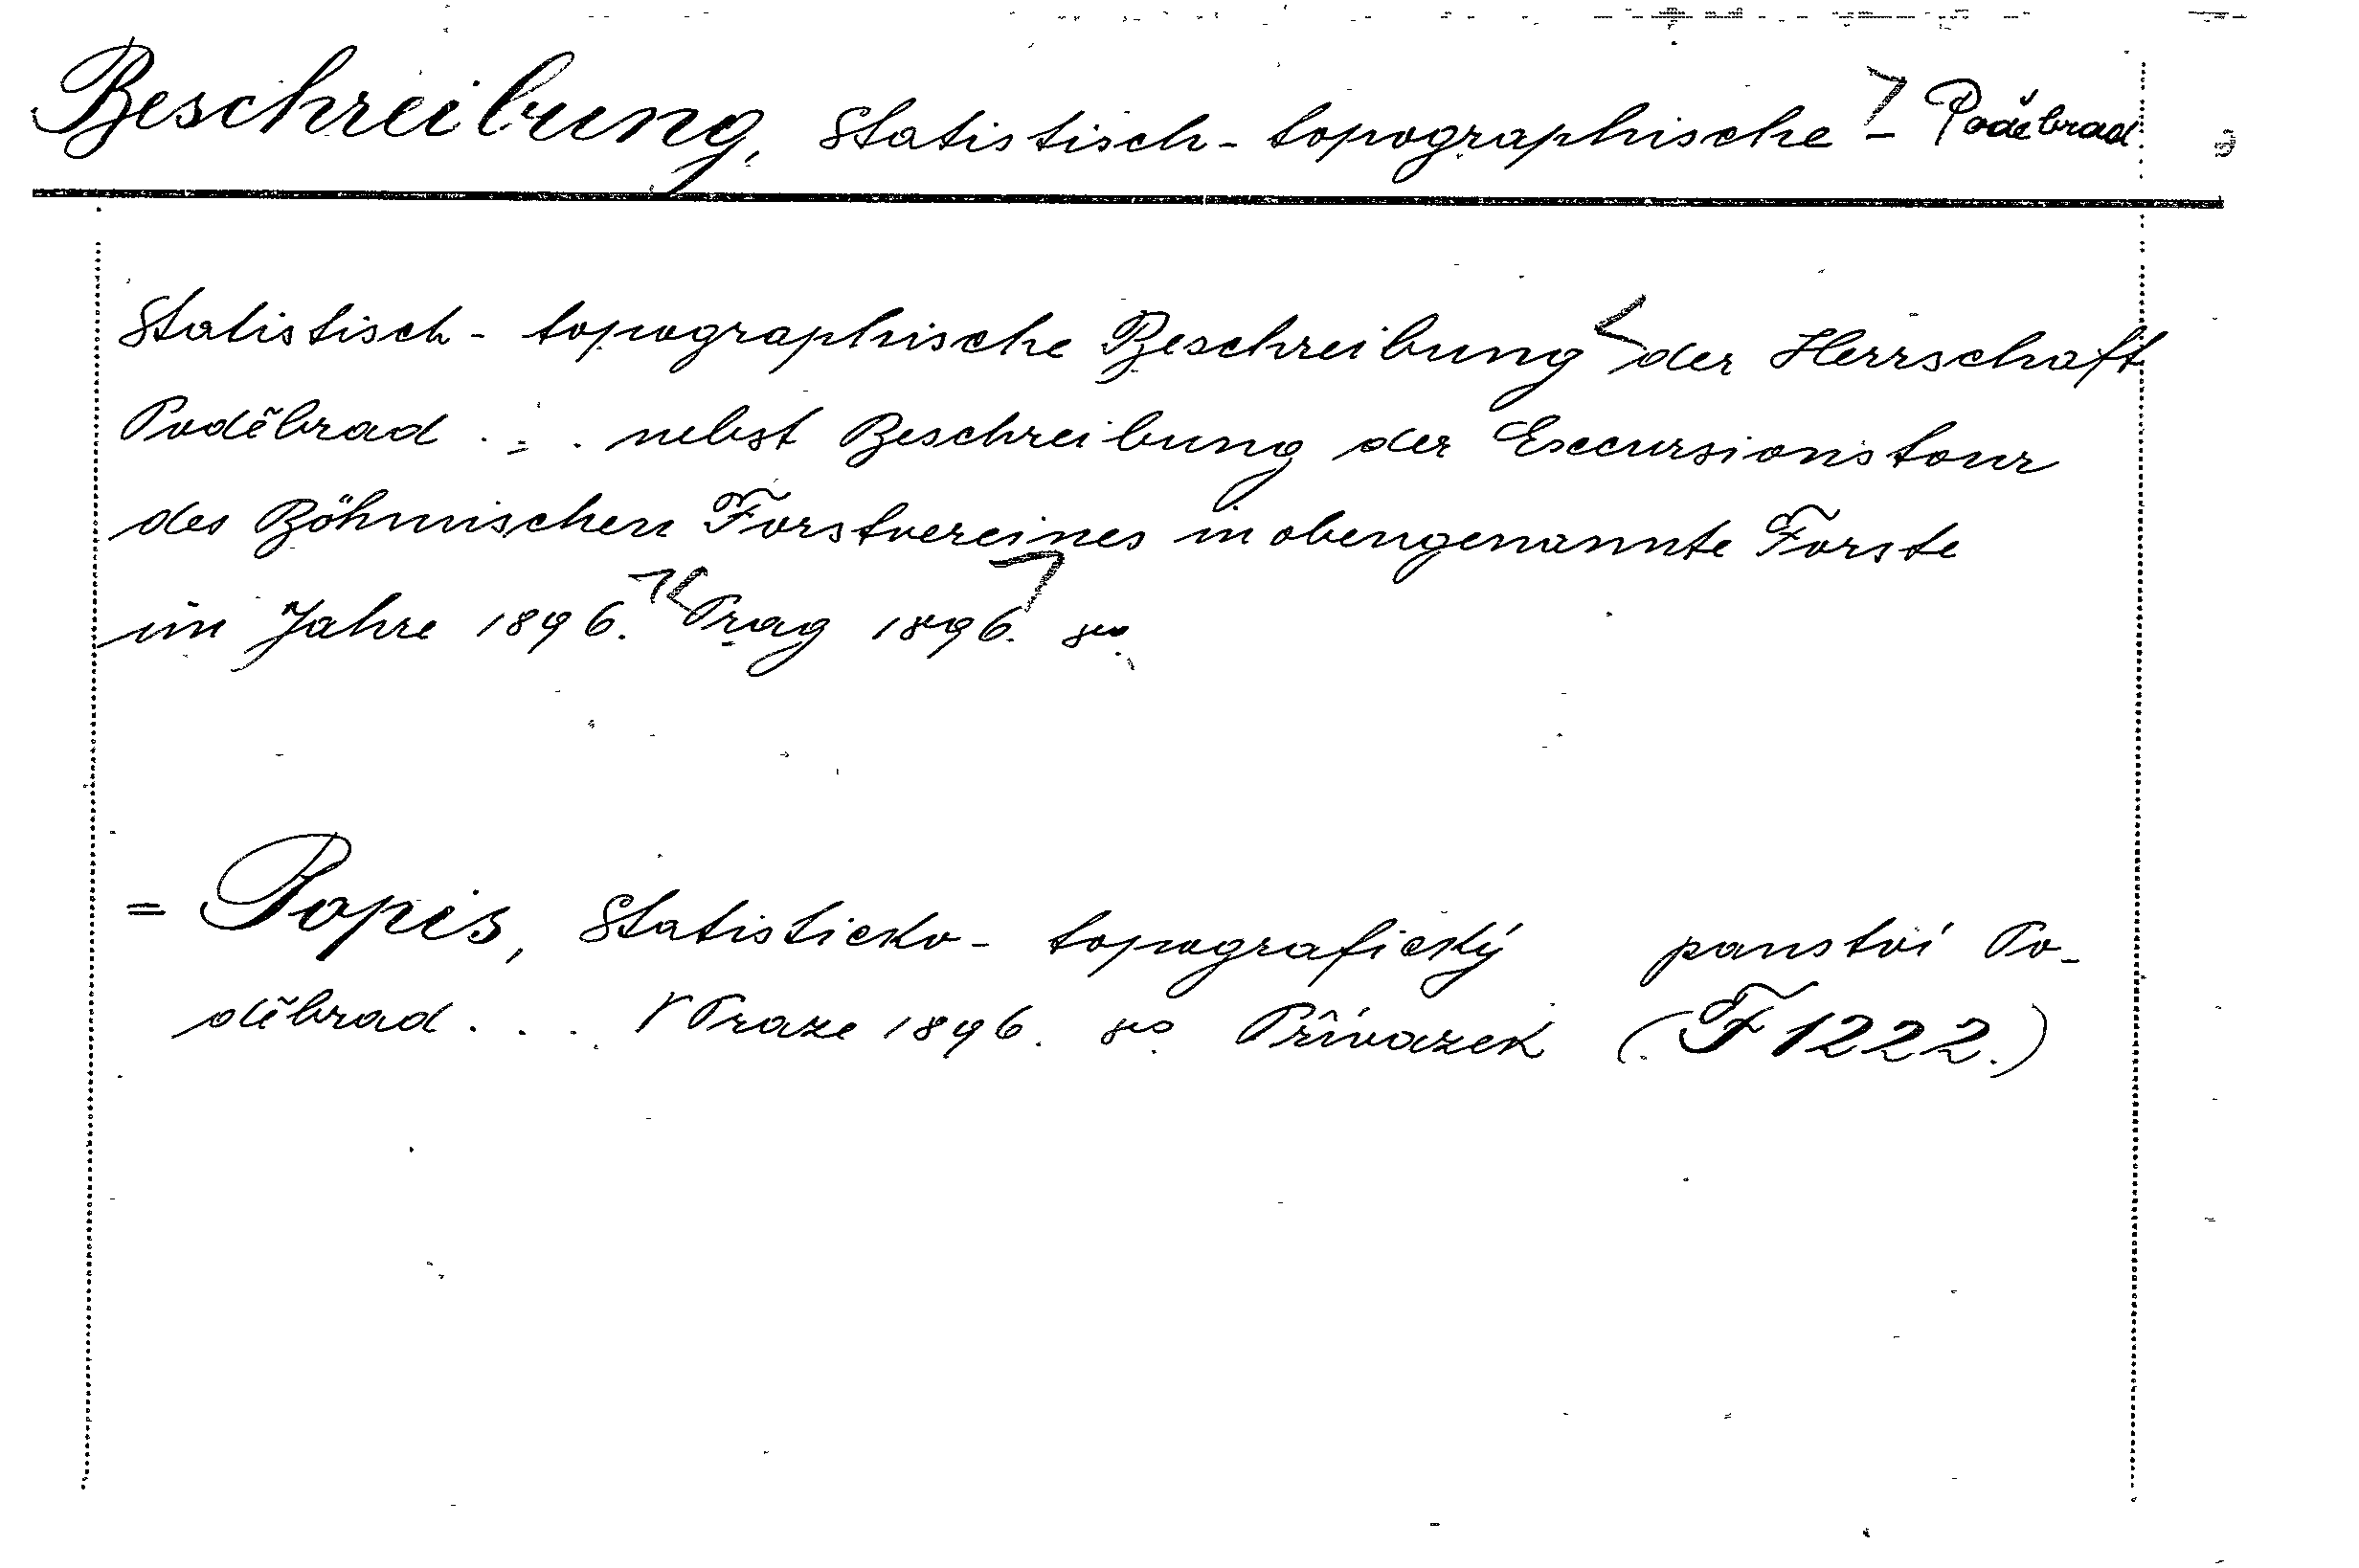 Beschreibung, statistisch-topographische - Poděbrad
Statistisch-topographische Beschreibung der Herrschaft
Poděbrad . . . nebst Beschreibung der Excursionstour
des Böhmischen Forstvereines in obengenannte Forste
im Jahre 1896. Prag 1896. 8o.
= Popis, statisticko-topografický panství Po-
děbrad . . . V Praze 1896. 8o. Přívazek (F 1222.)